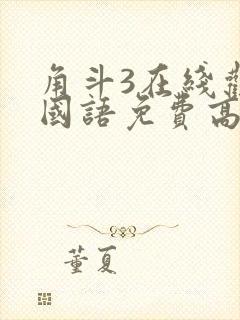 角斗3在线觀
國語免費高
董夏